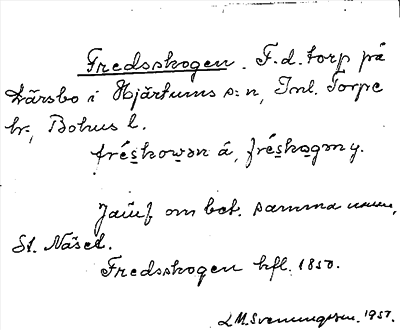 Fredsskogen. F.d. torp på
Kärsbo i Hjärtums s:n, Inl. Torpe
hr., Bohus l.
fréskowən á, fréskogən y.
Jämf om bet. samma namn,
St. Näsed.
Fredsskogen hfl. 1850.
L M. Svenungsson. 1957.